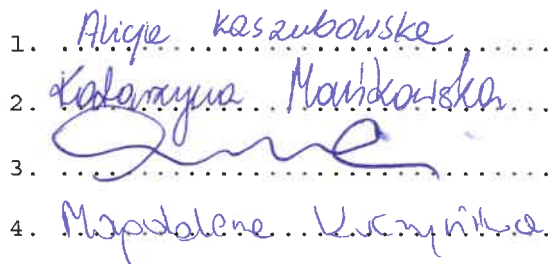 1. Alicja Kaszubowska
2. Katarzyna Mańkowska
3.
4. Magdalena Kuczyńska